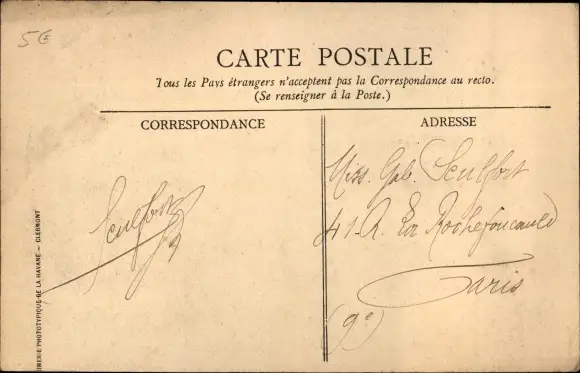 5€
CARTE POSTALE
Tous les Pays étrangers n'acceptent pas la Correspondance au recto.
(Se renseigner à la Poste.)
CORRESPONDANCE
ADRESSE
Miss. Gab. Seulfort
41 R. La Rochefoucauld
Paris
(9e)
Seulfort
IMERIE PHOTOTYPIQUE DE LA HAVANE — CLERMONT